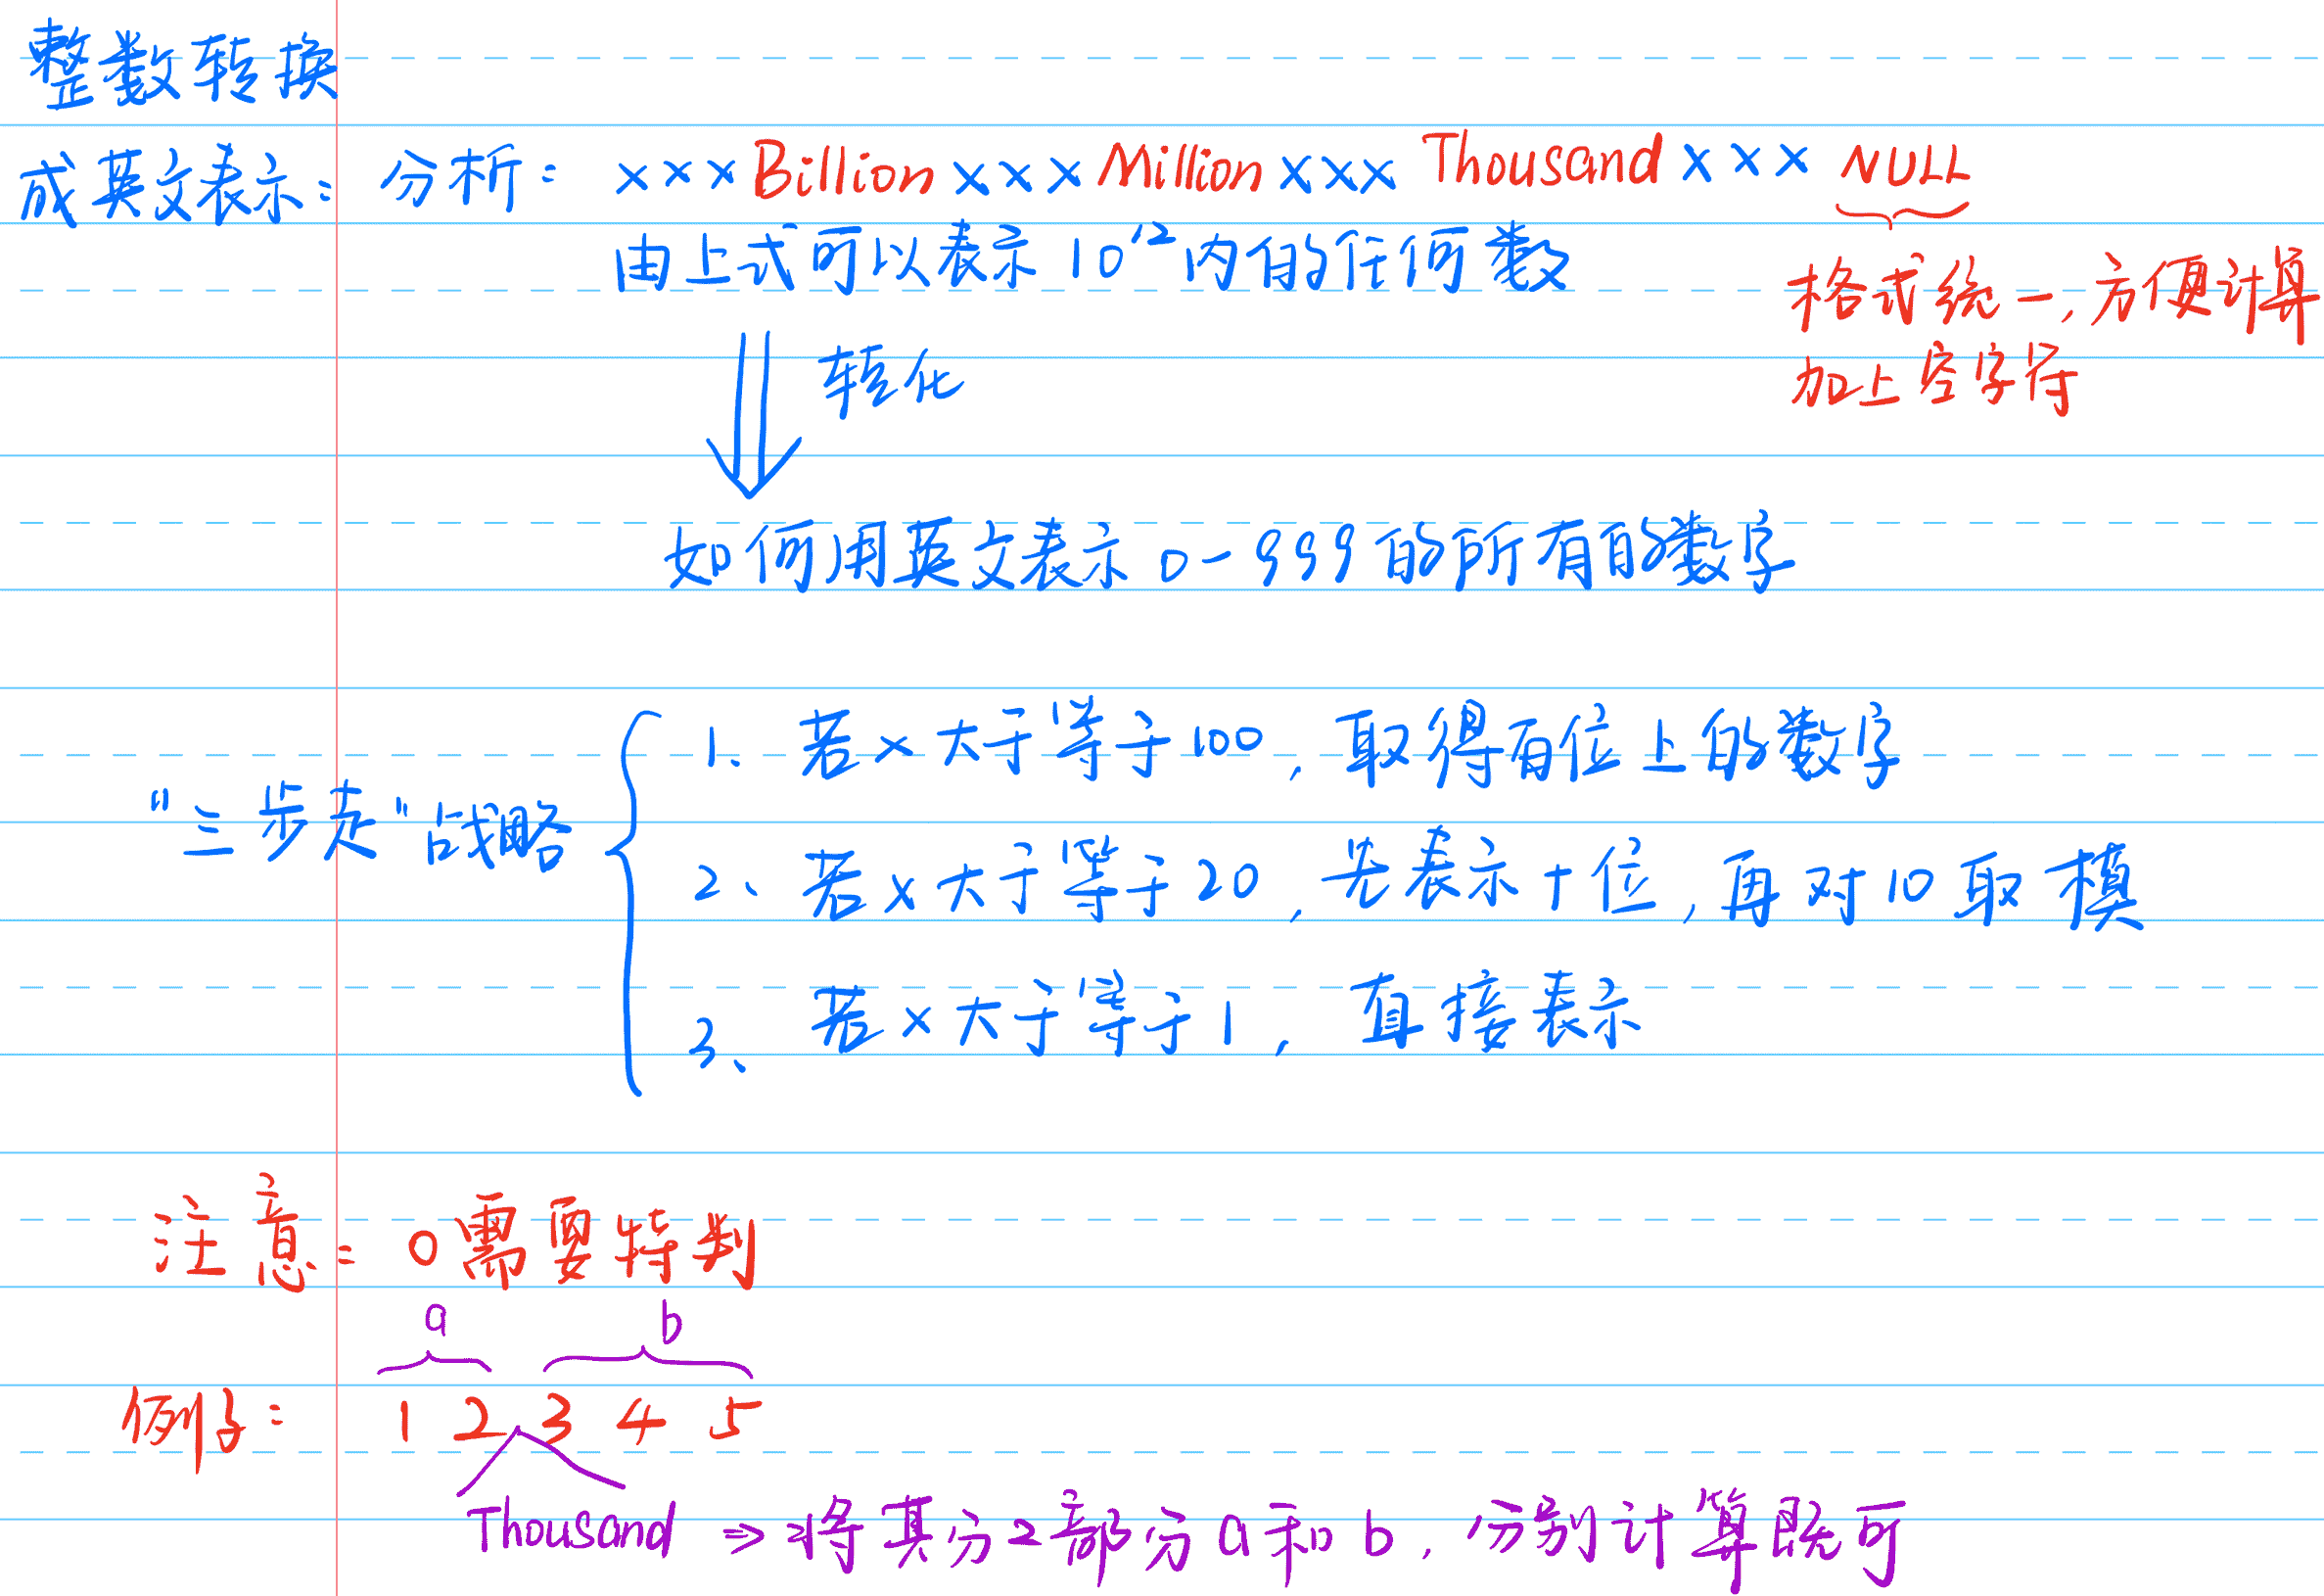 整数转换
成英文表示: 分析: xxx Billion xxx Million xxx Thousand xxx NULL
由上式可以表示 10^12 内的任何数
格式统一,方便计算
加上空字符
转化
如何用英文表示 0-999 的所有的数字
"三步走"战略
1、若x大于等于100,取得百位上的数字
2、若x大于等于20,先表示十位,再对10取模
3、若x大于等于1,直接表示
注意: 0需要特判
a b
例子: 1 2 3 4 5
Thousand ⇒ 将其分2部分a和b,分别计算既可